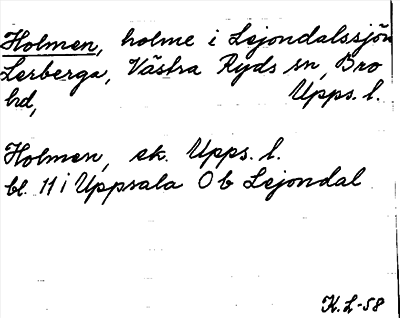 Holmen, holme i Lejondalssjön
Lerberga, Västra Ryds sn, Bro
hd, Upps. l.
Holmen, ek. Upps. l.
bl. 11 i Uppsala Ö b Lejondal
K.L-58